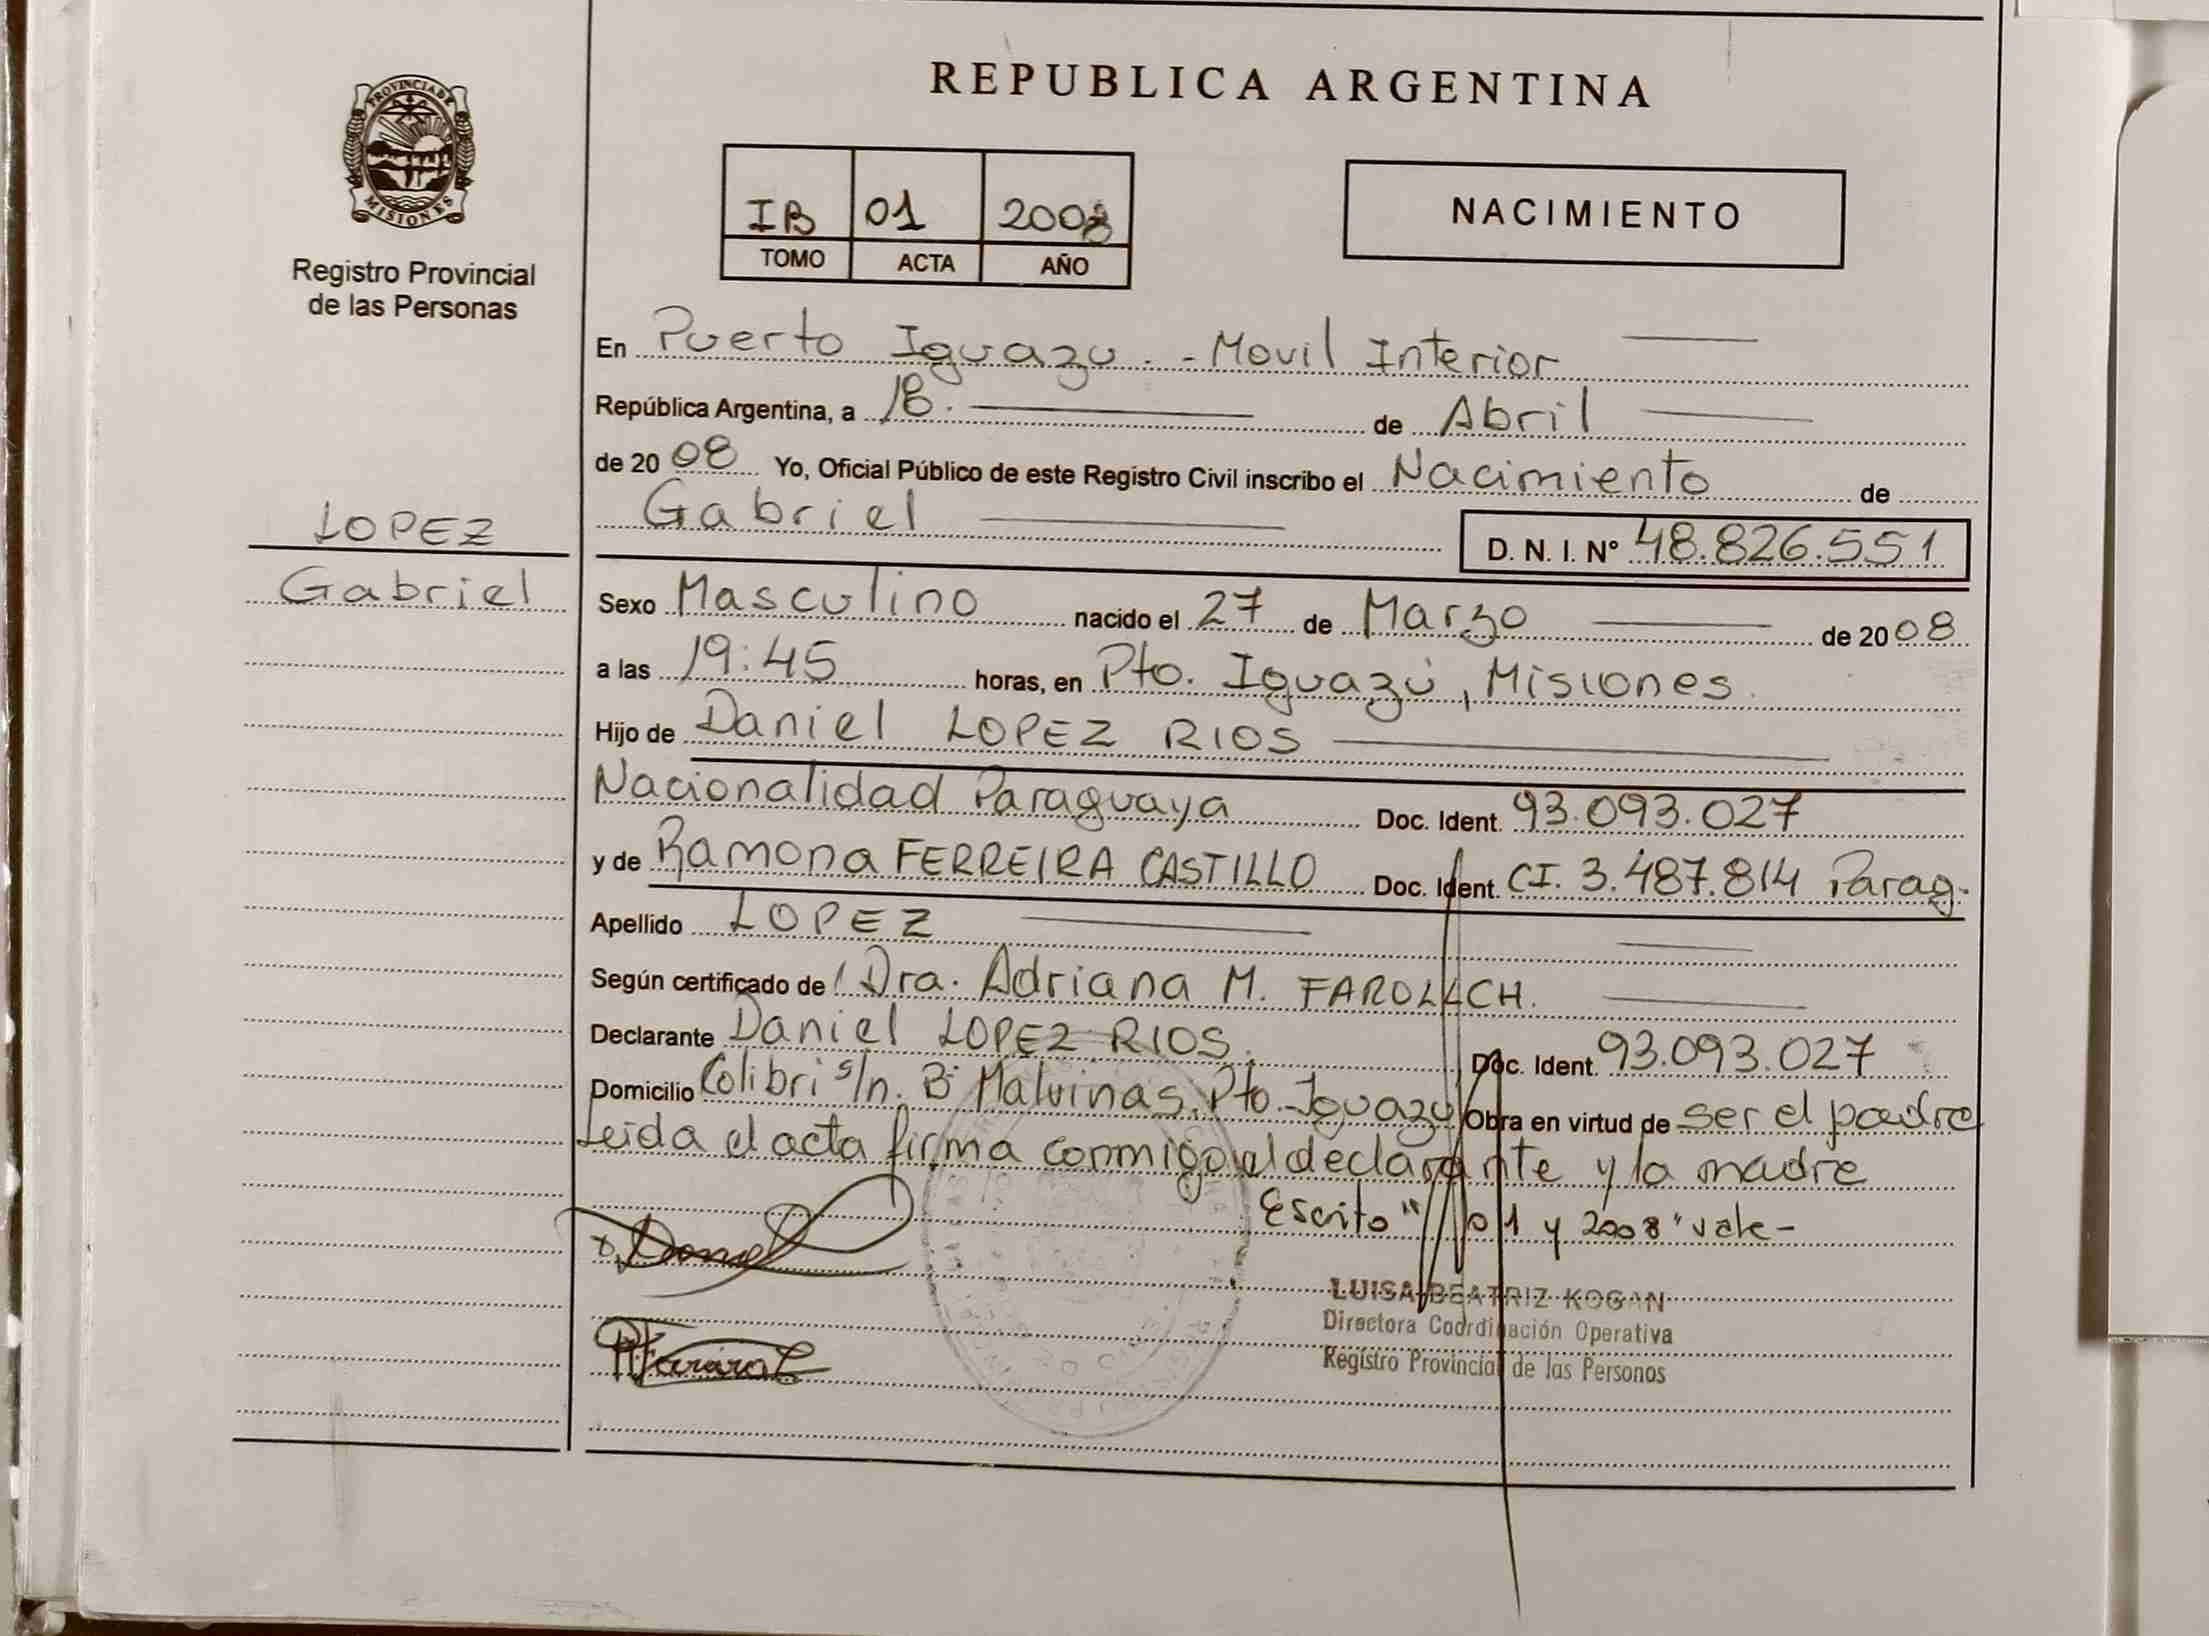 REPUBLICA ARGENTINA
PROVINCIA DE MISIONES
Registro Provincial
de las Personas
IB 01 2008
TOMO ACTA AÑO
NACIMIENTO
En Puerto Iguazu. - Movil Interior
República Argentina, a 18. de Abril
de 20 08 Yo, Oficial Público de este Registro Civil inscribo el Nacimiento de
Gabriel D. N. I. Nº 48.826.551
LOPEZ
Gabriel
Sexo Masculino nacido el 27 de Marzo de 20 08
a las 19:45 horas, en Pto. Iguazú, Misiones.
Hijo de Daniel LOPEZ RIOS
Nacionalidad Paraguaya Doc. Ident. 93.093.027
y de Ramona FERREIRA CASTILLO Doc. Ident. CI. 3.487.814 Parag.
Apellido LOPEZ
Según certificado de Dra. Adriana M.
Declarante Daniel LOPEZ RIOS. Doc. Ident. 93.093.027
Domicilio Colibri s/n. Bº Malvinas. Pto. Iguazu Obra en virtud de ser el padre
Leida el acta firma conmigo el declarante y la madre
Escrito " 01 y 2008 " vale -
Daniel
LUISA BEATRIZ KOGAN
Directora Coordinación Operativa
Registro Provincial de las Personas